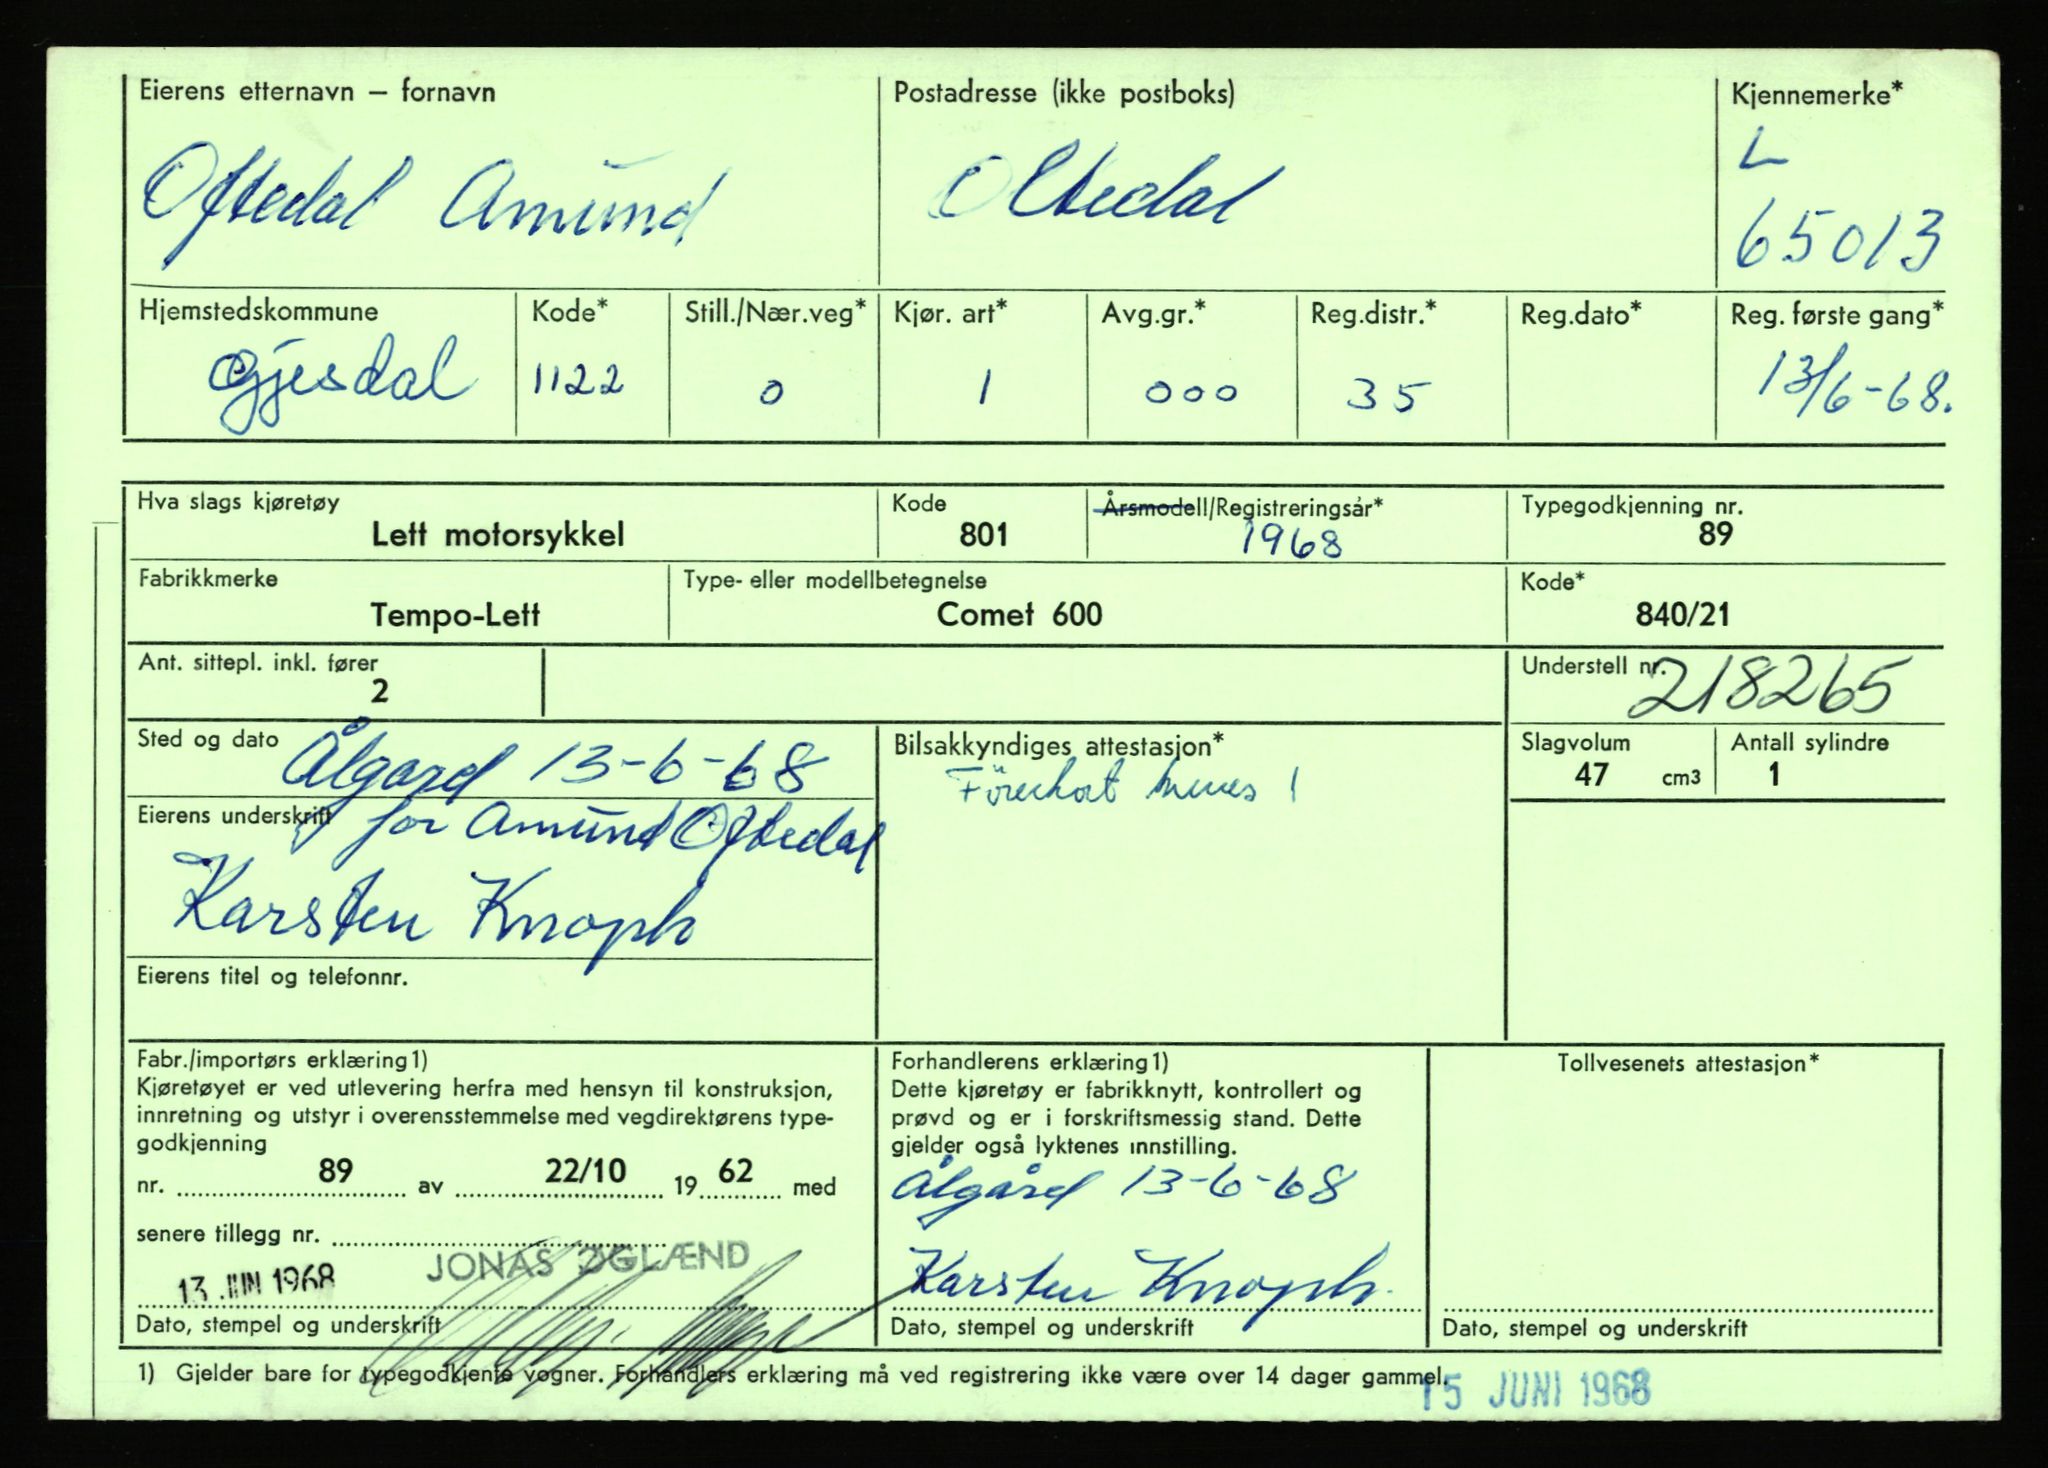 Eierens etternavn – fornavn
Oftedal Amund
Postadresse (ikke postboks)
Oltedal
Kjennemerke*
L
65013
Hjemstedskommune
Gjesdal
Kode*
1122
Still./Nær.veg*
0
Kjør. art*
1
Avg.gr.*
000
Reg.distr.*
35
Reg.dato*
Reg. første gang*
13/6-68.
Hva slags kjøretøy
Lett motorsykkel
Kode
801
Årsmodell/Registreringsår*
1968
Typegodkjenning nr.
89
Fabrikkmerke
Tempo-Lett
Type- eller modellbetegnelse
Comet 600
Kode*
840/21
Ant. sittepl. inkl. fører
2
Understell nr.
218265
Slagvolum
47 cm3
Antall sylindre
1
Sted og dato
Ålgård 13-6-68
Eierens underskrift
for Amund Oftedal
Karsten Knoph
Eierens titel og telefonnr.
Bilsakkyndiges attestasjon*
Fabr./importørs erklæring1)
Kjøretøyet er ved utlevering herfra med hensyn til konstruksjon,
innretning og utstyr i overensstemmelse med vegdirektørens type-
godkjenning
nr. 89 av 22/10 19 62 med
senere tillegg nr.
JONAS ØGLÆND
13 JUN 1968
Dato, stempel og underskrift
Forhandlerens erklæring1)
Dette kjøretøy er fabrikknytt, kontrollert og
prøvd og er i forskriftsmessig stand. Dette
gjelder også lyktenes innstilling.
Ålgård 13-6-68
Karsten Knoph.
Dato, stempel og underskrift
Tollvesenets attestasjon*
Dato, stempel og underskrift
1) Gjelder bare for typegodkjente vogner. Forhandlers erklæring må ved registrering ikke være over 14 dager gammel.
15 JUNI 1968